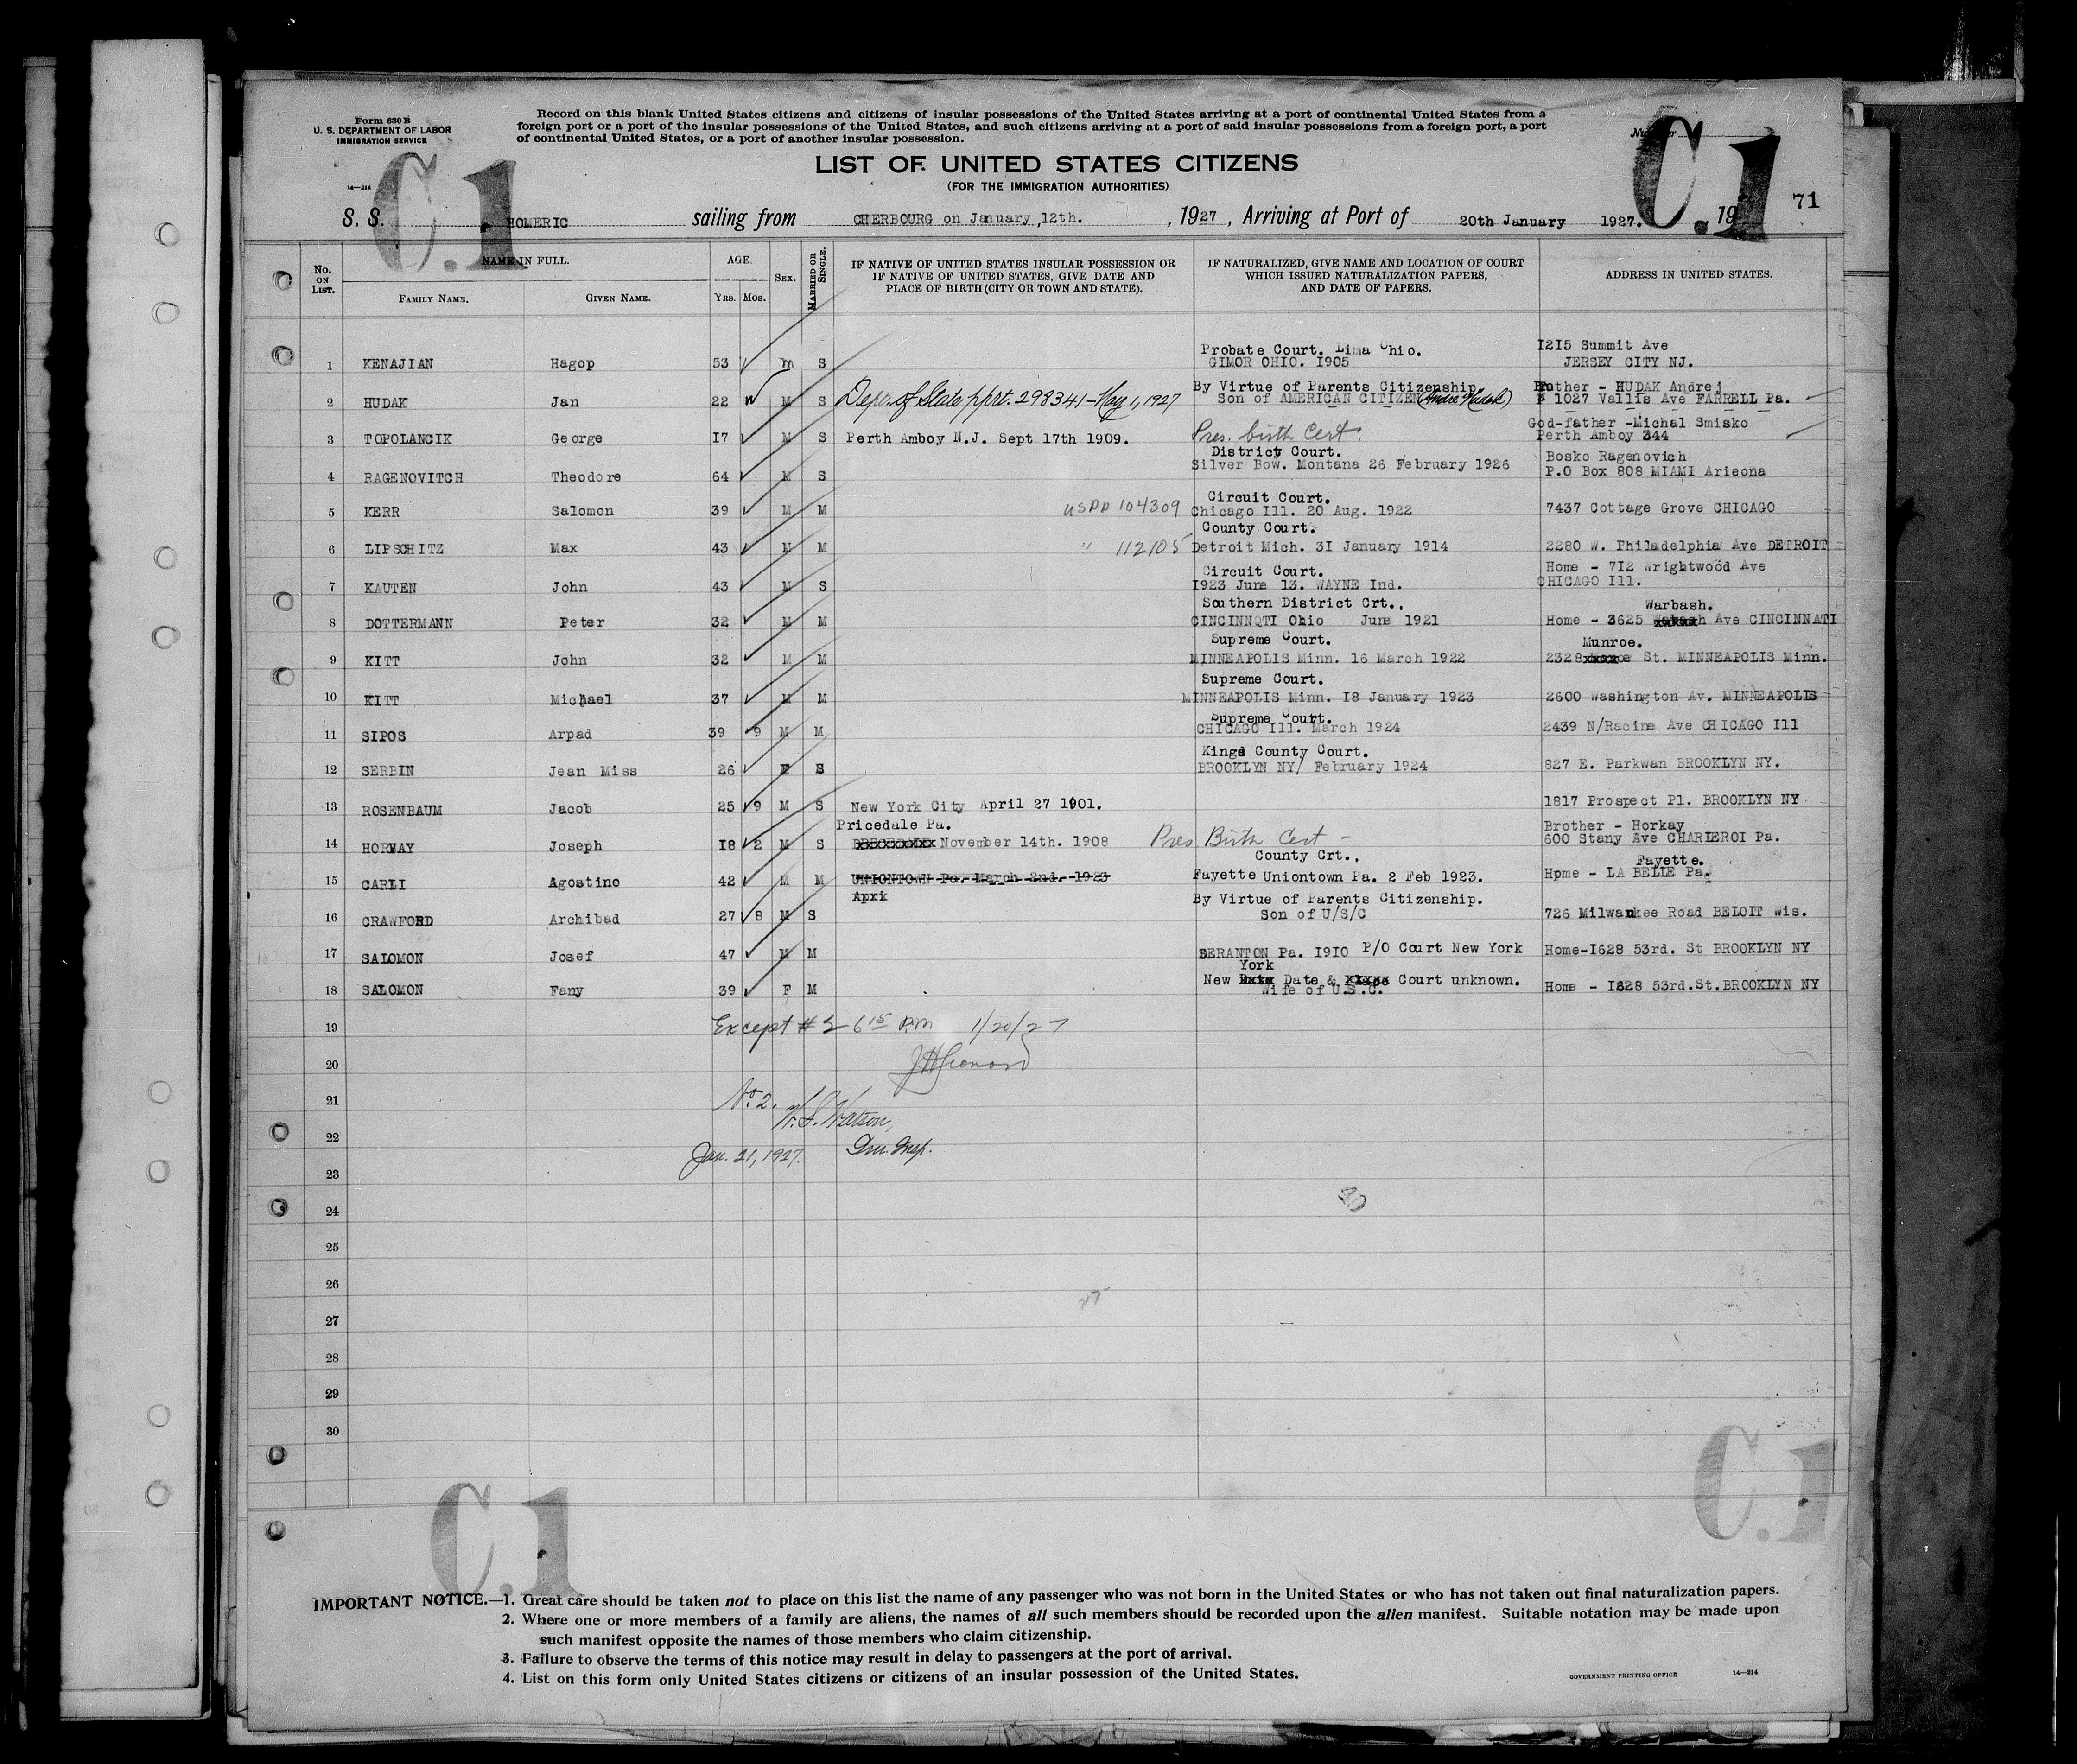 Form 630 B
U. S. DEPARTMENT OF LABOR
IMMIGRATION SERVICE
14—214
Record on this blank United States citizens and citizens of insular possessions of the United States arriving at a port of continental United States from a
foreign port or a port of the insular possessions of the United States, and such citizens arriving at a port of said insular possessions from a foreign port, a port
of continental United States, or a port of another insular possession.
C.1
C.1
LIST OF UNITED STATES CITIZENS
(FOR THE IMMIGRATION AUTHORITIES)
71
S. S. HOMERIC sailing from CHERBOURG on January ,12th. , 1927 , Arriving at Port of 20th January 1927. 19
No. ON LIST. NAME IN FULL. AGE. SEX. MARRIED OR SINGLE. IF NATIVE OF UNITED STATES INSULAR POSSESSION OR IF NATIVE OF UNITED STATES, GIVE DATE AND PLACE OF BIRTH (CITY OR TOWN AND STATE). IF NATURALIZED, GIVE NAME AND LOCATION OF COURT WHICH ISSUED NATURALIZATION PAPERS, AND DATE OF PAPERS. ADDRESS IN UNITED STATES.
FAMILY NAME. GIVEN NAME. YRS. MOS.
Probate Court. Lima Ohio. 1215 Summit Ave
1 KENAJIAN Hagop 53 m S GIMOR OHIO. 1905 JERSEY CITY NJ.
By Virtue of Parents Citizenship Father - HUDAK Andrej
2 HUDAK Jan 22 M S Dep. of State pprt. 298341 - May 1, 1927 Son of AMERICAN CITIZEN 1027 Vallis Ave FARRELL Pa.
God-father -Michal Smisko
3 TOPOLANCIK George 17 M S Perth Amboy N.J. Sept 17th 1909. Pres. birth Cert. Perth Amboy 344
District Court. Bosko Ragenovich
4 RAGENOVITCH Theodore 64 M S Silver Bow. Montana 26 February 1926 P.O Box 808 MIAMI Arieona
Circuit Court.
5 KERR Salomon 39 M M USPP 104309 Chicago Ill. 20 Aug. 1922 7437 Cottage Grove CHICAGO
County Court.
6 LIPSCHITZ Max 43 M M " 112105 Detroit Mich. 31 January 1914 2280 W. Philadelphia Ave DETROIT
Circuit Court. Home - 712 Wrightwood Ave
7 KAUTEN John 43 M S 1923 June 13. WAYNE Ind. CHICAGO Ill.
Southern District Crt., Warbash.
8 DOTTERMANN Peter 32 M M CINCINNQTI Ohio June 1921 Home - 3625 Ave CINCINNATI
Supreme Court. Munroe.
9 KITT John 32 M M MINNEAPOLIS Minn. 16 March 1922 2328 St. MINNEAPOLIS Minn.
Supreme Court.
10 KITT Michael 37 M M MINNEAPOLIS Minn. 18 January 1923 2600 Washington Av. MINNEAPOLIS
Supreme Court.
11 SIPOS Arpad 39 9 M M CHICAGO Ill. March 1924 2439 N/Racine Ave CHICAGO Ill
Kings County Court.
12 SERBIN Jean Miss 26 F S BROOKLYN NY/ February 1924 827 E. Parkwan BROOKLYN NY.
13 ROSENBAUM Jacob 25 9 M S New York City April 27 1901. 1817 Prospect Pl. BROOKLYN NY
Pricedale Pa. Brother - Horkay
14 HORVAY Joseph 18 2 M S November 14th. 1908 Pres Birth Cert - 600 Stany Ave CHARLEROI Pa.
County Crt., Fayette.
15 CARLI Agostino 42 M M UNIONTOWN Pa. March 2nd. 1923 Fayette Uniontown Pa. 2 Feb 1923. Home - LA BELLE Pa.
Aprk By Virtue of Parents Citizenship.
16 CRAWFORD Archibad 27 8 M S Son of U/S/C 726 Milwankee Road BELOIT Wis.
17 SALOMON Josef 47 M M SERANTON Pa. 1910 P/O Court New York Home-1628 53rd. St BROOKLYN NY
York
18 SALOMON Fany 39 F M New Date & Court unknown. Home - 1628 53rd.St.BROOKLYN NY
Wife of U.S.C.
19 Except # 2 6 15 P.M 1/20/27
20
21 No. 2. W. S. Watson,
22 Imm. Insp.
23 Jan. 21, 1927.
24
25
26
27
28
29
30
C.1
C.1
IMPORTANT NOTICE.—1. Great care should be taken not to place on this list the name of any passenger who was not born in the United States or who has not taken out final naturalization papers.
2. Where one or more members of a family are aliens, the names of all such members should be recorded upon the alien manifest. Suitable notation may be made upon
such manifest opposite the names of those members who claim citizenship.
3. Failure to observe the terms of this notice may result in delay to passengers at the port of arrival.
4. List on this form only United States citizens or citizens of an insular possession of the United States.
GOVERNMENT PRINTING OFFICE 14—214